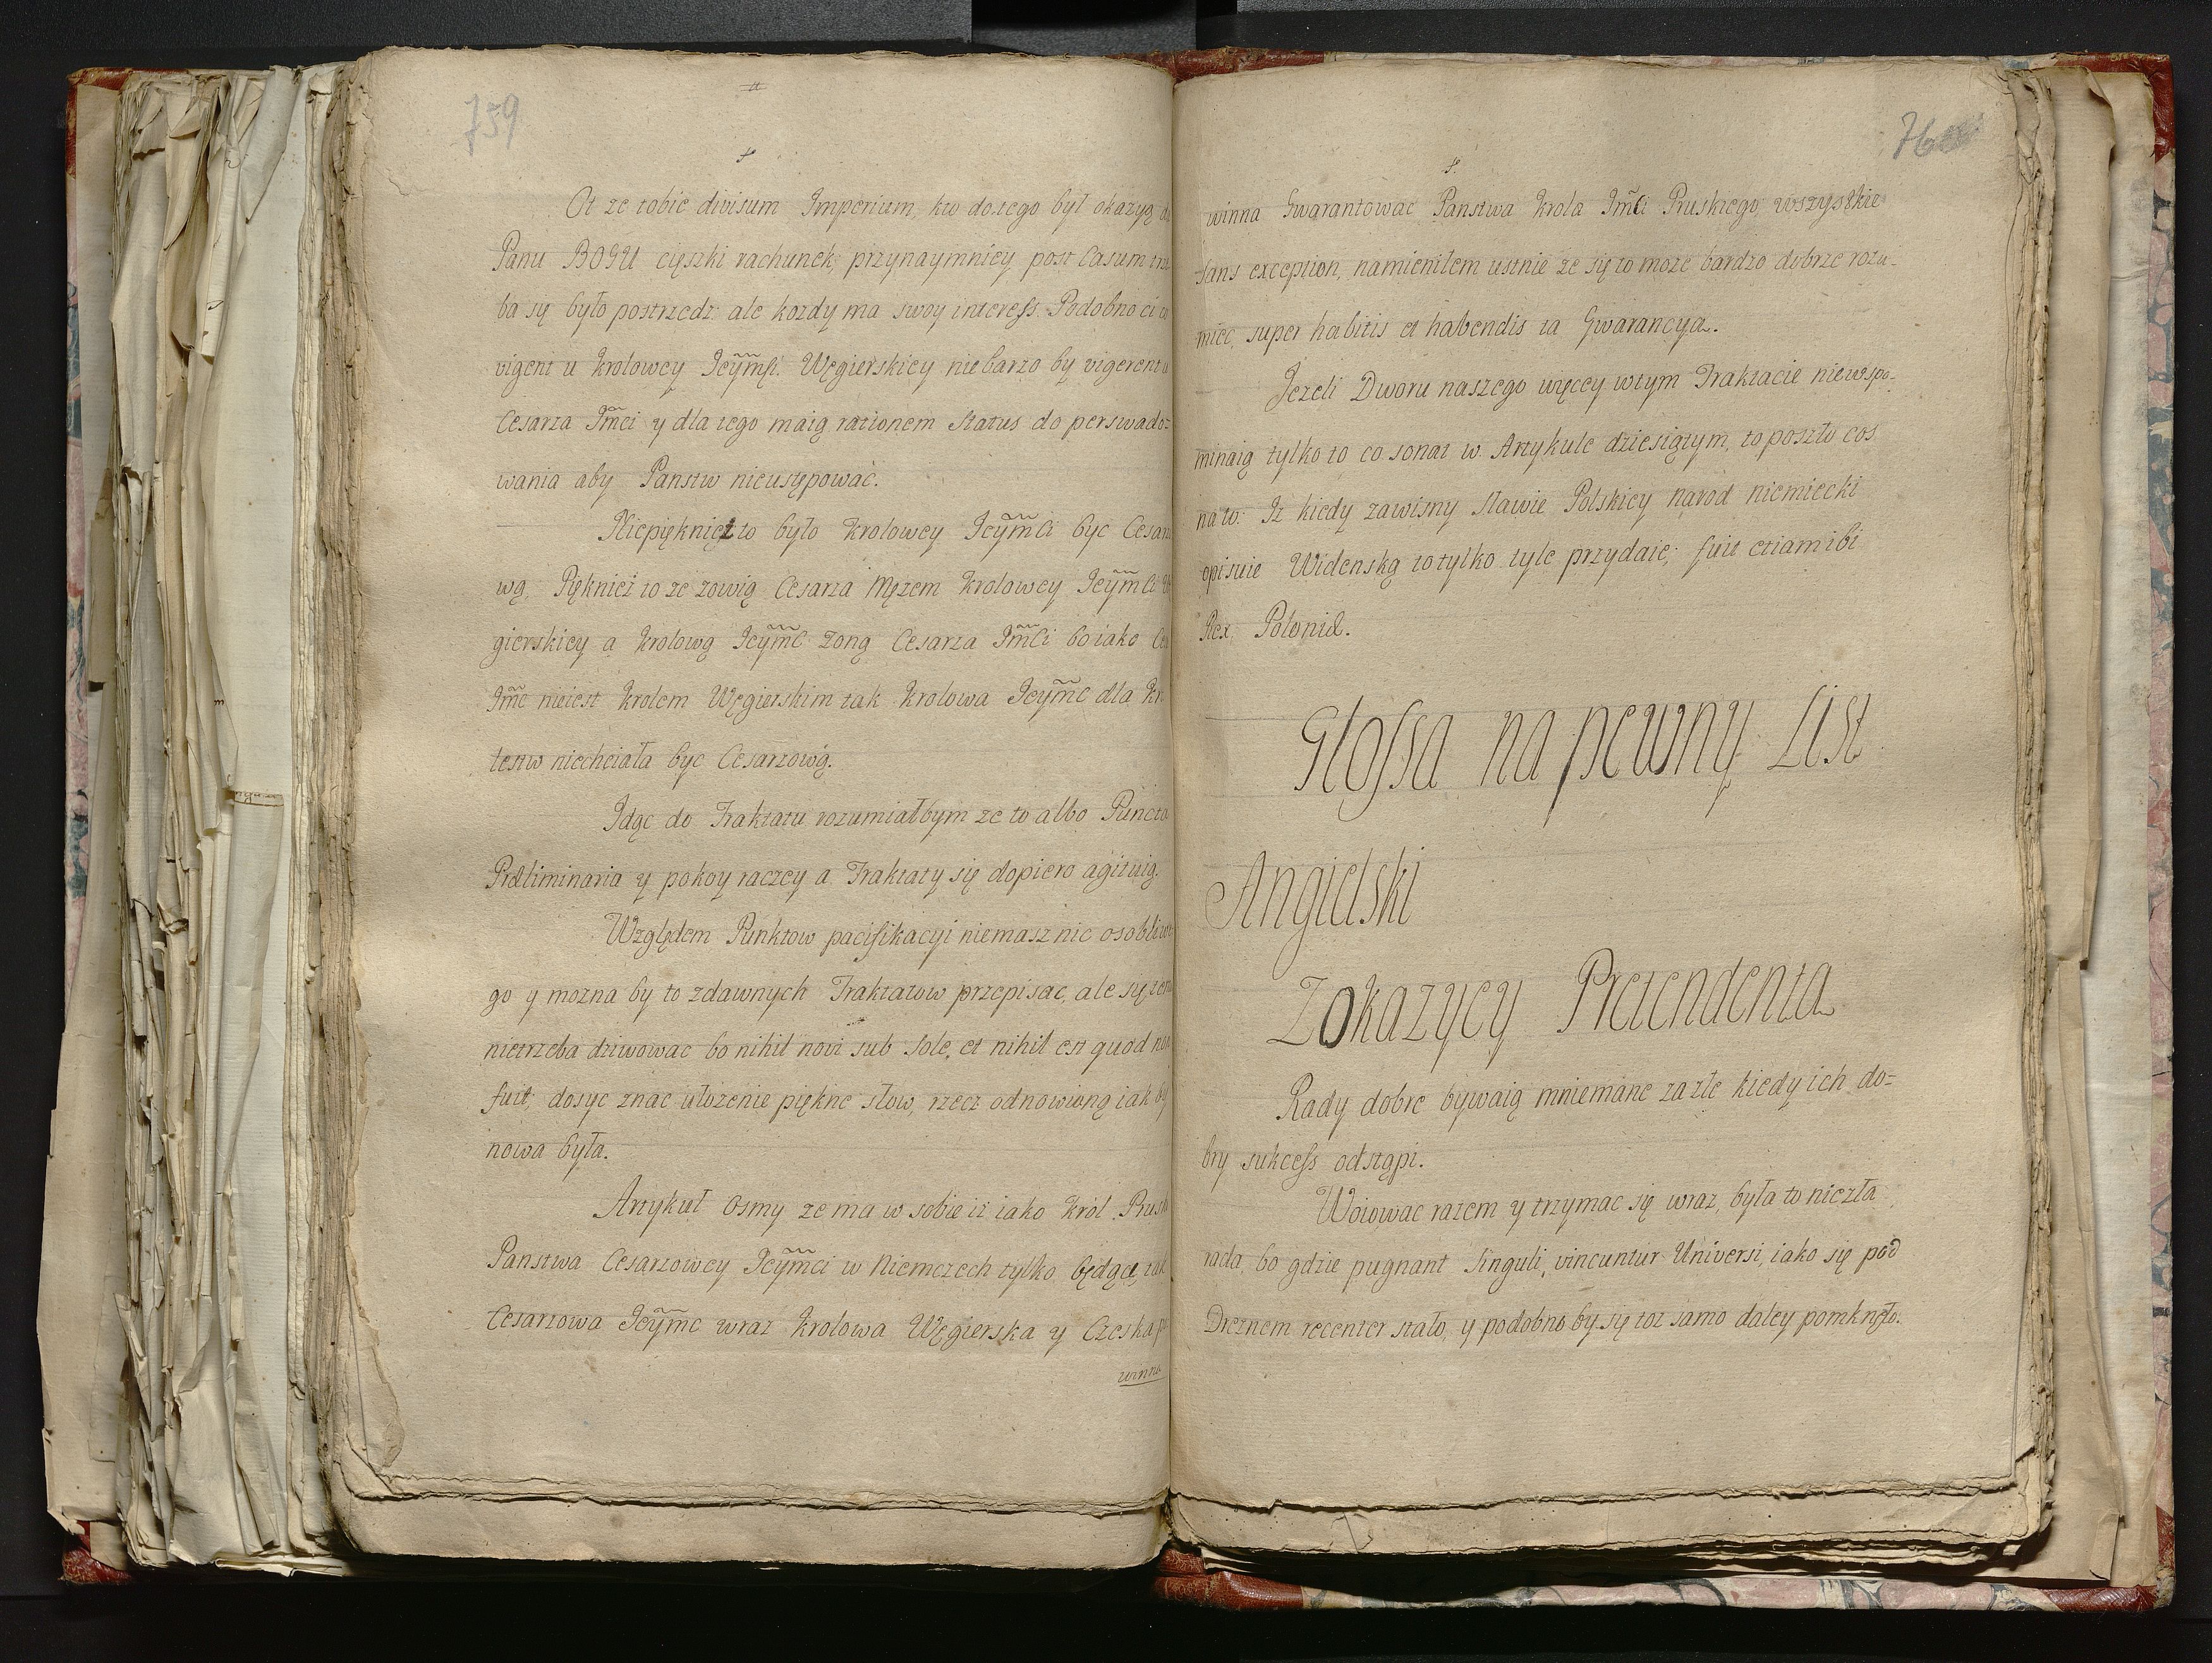 759
Ot ze robie divisum Imperium, kto do tego był okazyą
Panu BOGU cięszki rachunek, przynaymniey post Casum
ba sy było postrzedz ale kozdy ma swoy interess. Podobno ci
vigent u krolowey Jeymci. Węgierskiey nie barzo by vigerent u
Cesarza Jmci y dla tego maią rationem Status do perswado=
wania aby Panstw nieustępować.
Niepięknież to było krolowey Jeymci byc
wą. Pięknież to ze zowią Cesarza Męzem krolowey Jeymci
gierskiey a krolową Jeymc zoną Cesarza Jmci bo iako
Jmc nieiest krolem Węgierskim tak krolowa Jeymc dla
testw niechciała byc Cesarzową.
Idąc do Traktatu rozumiałbym ze to albo Puncta
Præliminaria y pokoy raczey a Traktaty się dopiero agituią.
Względem Punktow pacifikacyi niemasz nic
go y mozna by to zdawnych Traktatow przepisac, ale się
nietrzeba dziwowac bo nihil novi sub sole, et nihil est quod
fuit, dosyc znac ułozenie piękne słow, rzecz odnowioną iak by
nowa była.
Artykuł osmy ze ma w sobie iż iako król
Panstwa Cesarzowey Jeymci w Niemczech tylko będące,
Cesarzowa Jeymc wraz krolowa Węgierska y Czeska
winna
760
winna Gwarantowac Panstwa krola Jmci Pruskiego, wszystkie
sans exception, namieniłem ustnie ze się to moze bardzo dobrze rozu-
miec, super habitis et habendis ta Gwarancya.
Jezeli Dworu naszego więcey wtym Traktacie niewspo-
minaią tylko to co sonat w Artykule dziesiątym, to poszło cos
na to: Iz kiedy zawisny sławie Polskiey narod niemiecki
opisuie Widenską to tylko tyle przydaie; fuit etiam ibi
Rex Poloniæ.
Glossa na pewny List
Angielski
Zokazyey Pretendenta
Rady dobre bywaią mniemane za złe kiedy ich do=
bry sukcess odstąpi.
Woiowac razem y trzymac się wraz, była to niezła
rada, bo gdzie pugnant singuli, vincuntur Universi, iako się pod
Dreznem recenter stało, y podobno by się toz samo daley pomknęło.